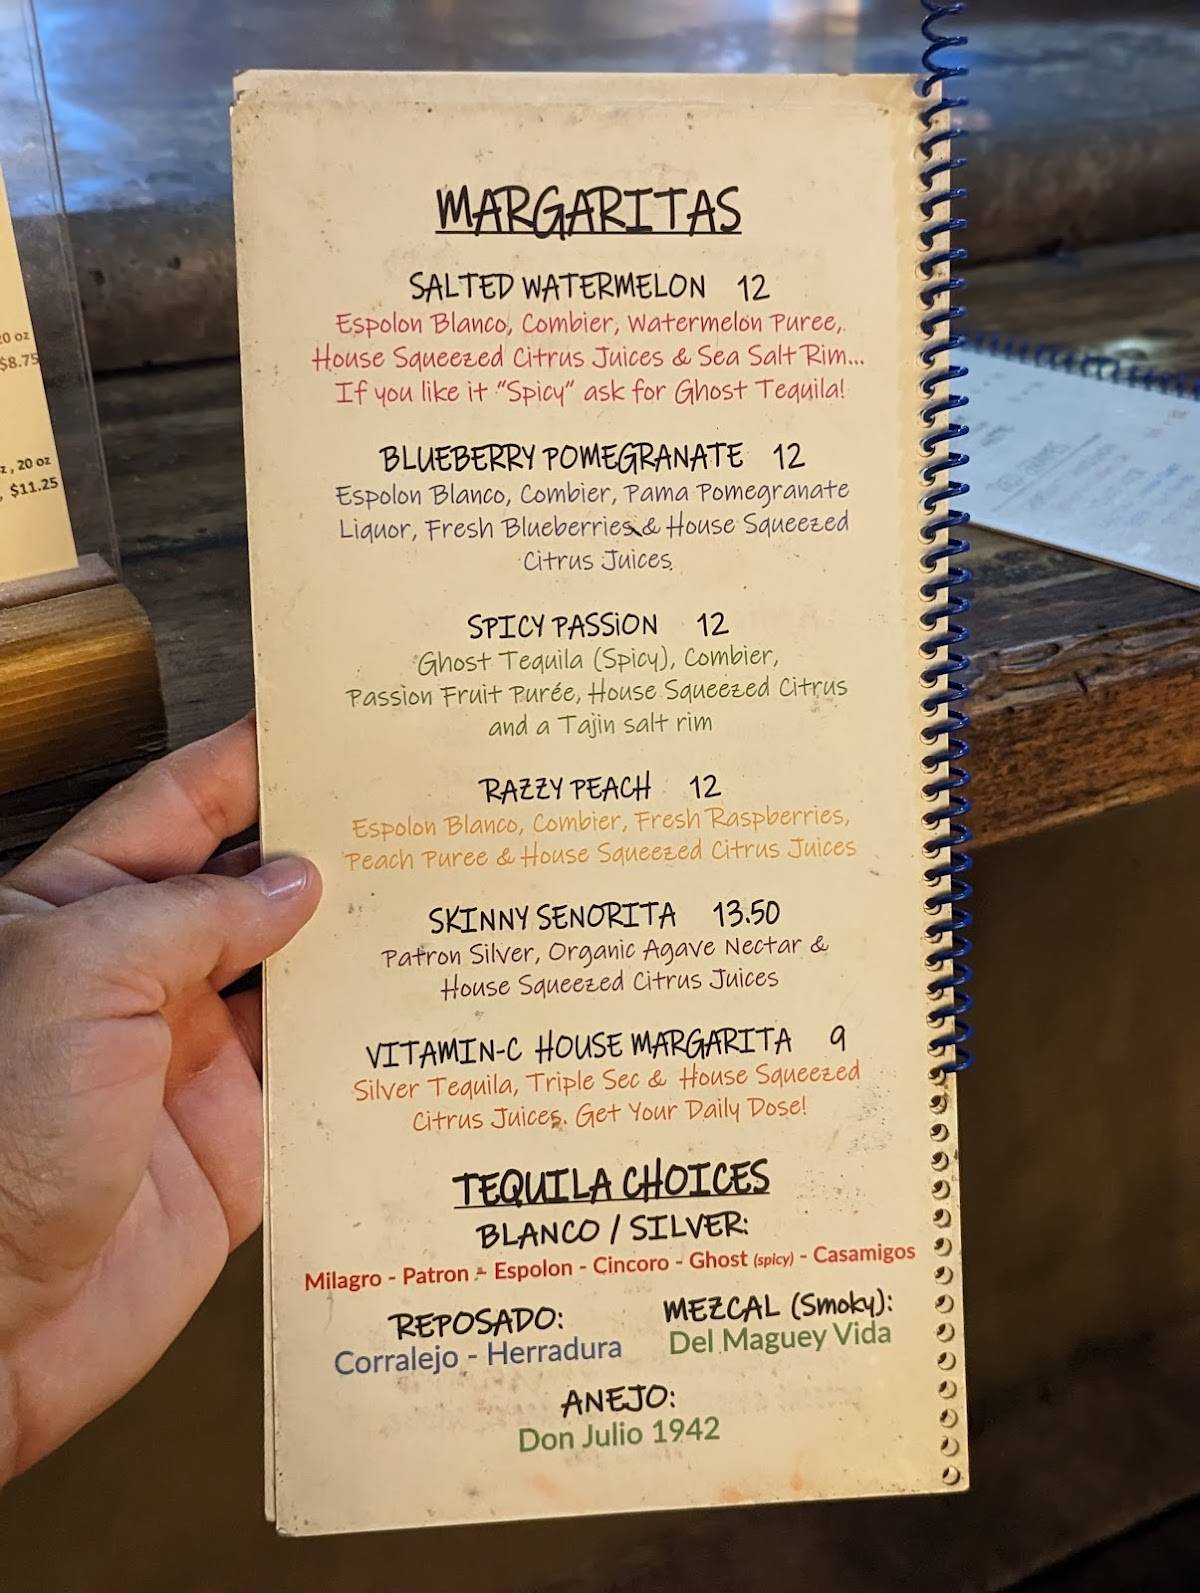 MARGARITAS
SALTED WATERMELON 12
Espolon Blanco, Combier, Watermelon Puree,
House Squeezed Citrus Juices & Sea Salt Rim...
If you like it "Spicy" ask for Ghost Tequila!
BLUEBERRY POMEGRANATE 12
Espolon Blanco, Combier, Pama Pomegranate
Liquor, Fresh Blueberries & House Squeezed
Citrus Juices
SPICY PASSiON 12
Ghost Tequila (Spicy), Combier,
Passion Fruit Purée, House Squeezed Citrus
and a Tajin salt rim
RAZZY PEACH 12
Espolon Blanco, Combier, Fresh Raspberries,
Peach Puree & House Squeezed Citrus Juices
SKINNY SENORITA 13.50
Patron Silver, Organic Agave Nectar &
House Squeezed Citrus Juices
VITAMIN-C HOUSE MARGARITA 9
Silver Tequila, Triple Sec & House Squeezed
Citrus Juices. Get Your Daily Dose!
TEQUILA CHOICES
BLANCO / SILVER:
Milagro - Patron - Espolon - Cincoro - Ghost (spicy) - Casamigos
REPOSADO:
Corralejo - Herradura
MEZCAL (Smoky):
Del Maguey Vida
ANEJO:
Don Julio 1942
20 oz
$8.75
, 20 oz
, $11.25